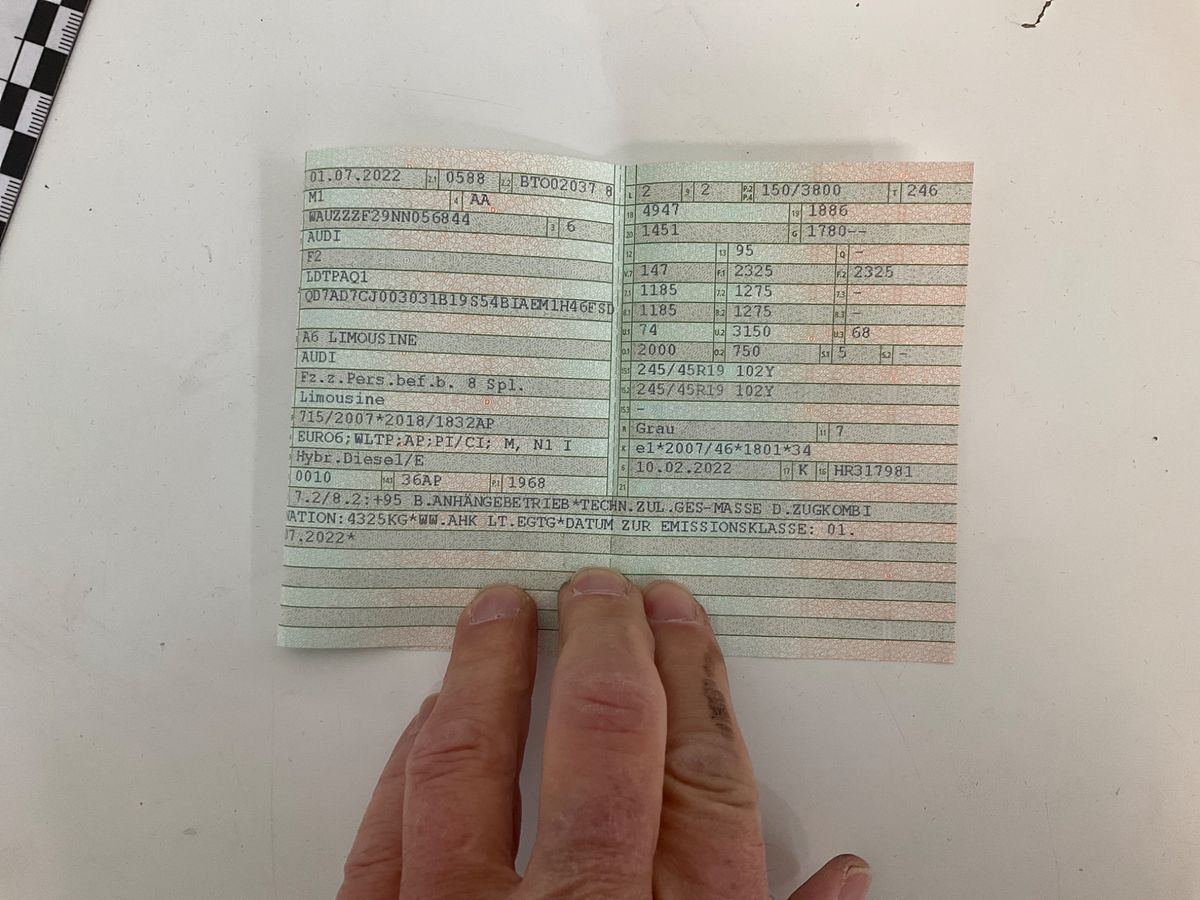 01.07.2022 2.1 0588 2.2 BTO02037 8
M1 4 AA
WAUZZZF29NN056844 3 6
AUDI
F2
LDTPAQ1
QD7AD7CJ003031B19S54BIAEM1H46FSD
A6 LIMOUSINE
AUDI
Fz.z.Pers.bef.b. 8 Spl.
Limousine
715/2007*2018/1832AP
EURO6;WLTP;AP;PI/CI; M, N1 I
Hybr.Diesel/E
0010 14.1 36AP P.1 1968
L 2 9 2 P.2 P.4 150/3800 T 246
18 4947 19 1886
20 1451 G 1780--
12 13 95 Q -
V.7 147 F.1 2325 F.2 2325
7.1 1185 7.2 1275 7.3 -
8.1 1185 8.2 1275 8.3 -
U.1 74 U.2 3150 U.3 68
O.1 2000 O.2 750 S.1 5 S.2 -
15.1 245/45R19 102Y
15.2 245/45R19 102Y
15.3 -
R Grau 11 7
K e1*2007/46*1801*34
6 10.02.2022 17 K 16 HR317981
21
7.2/8.2:+95 B.ANHÄNGEBETRIEB*TECHN.ZUL.GES-MASSE D.ZUGKOMBI
NATION:4325KG*WW.AHK LT.EGTG*DATUM ZUR EMISSIONSKLASSE: 01.
07.2022*